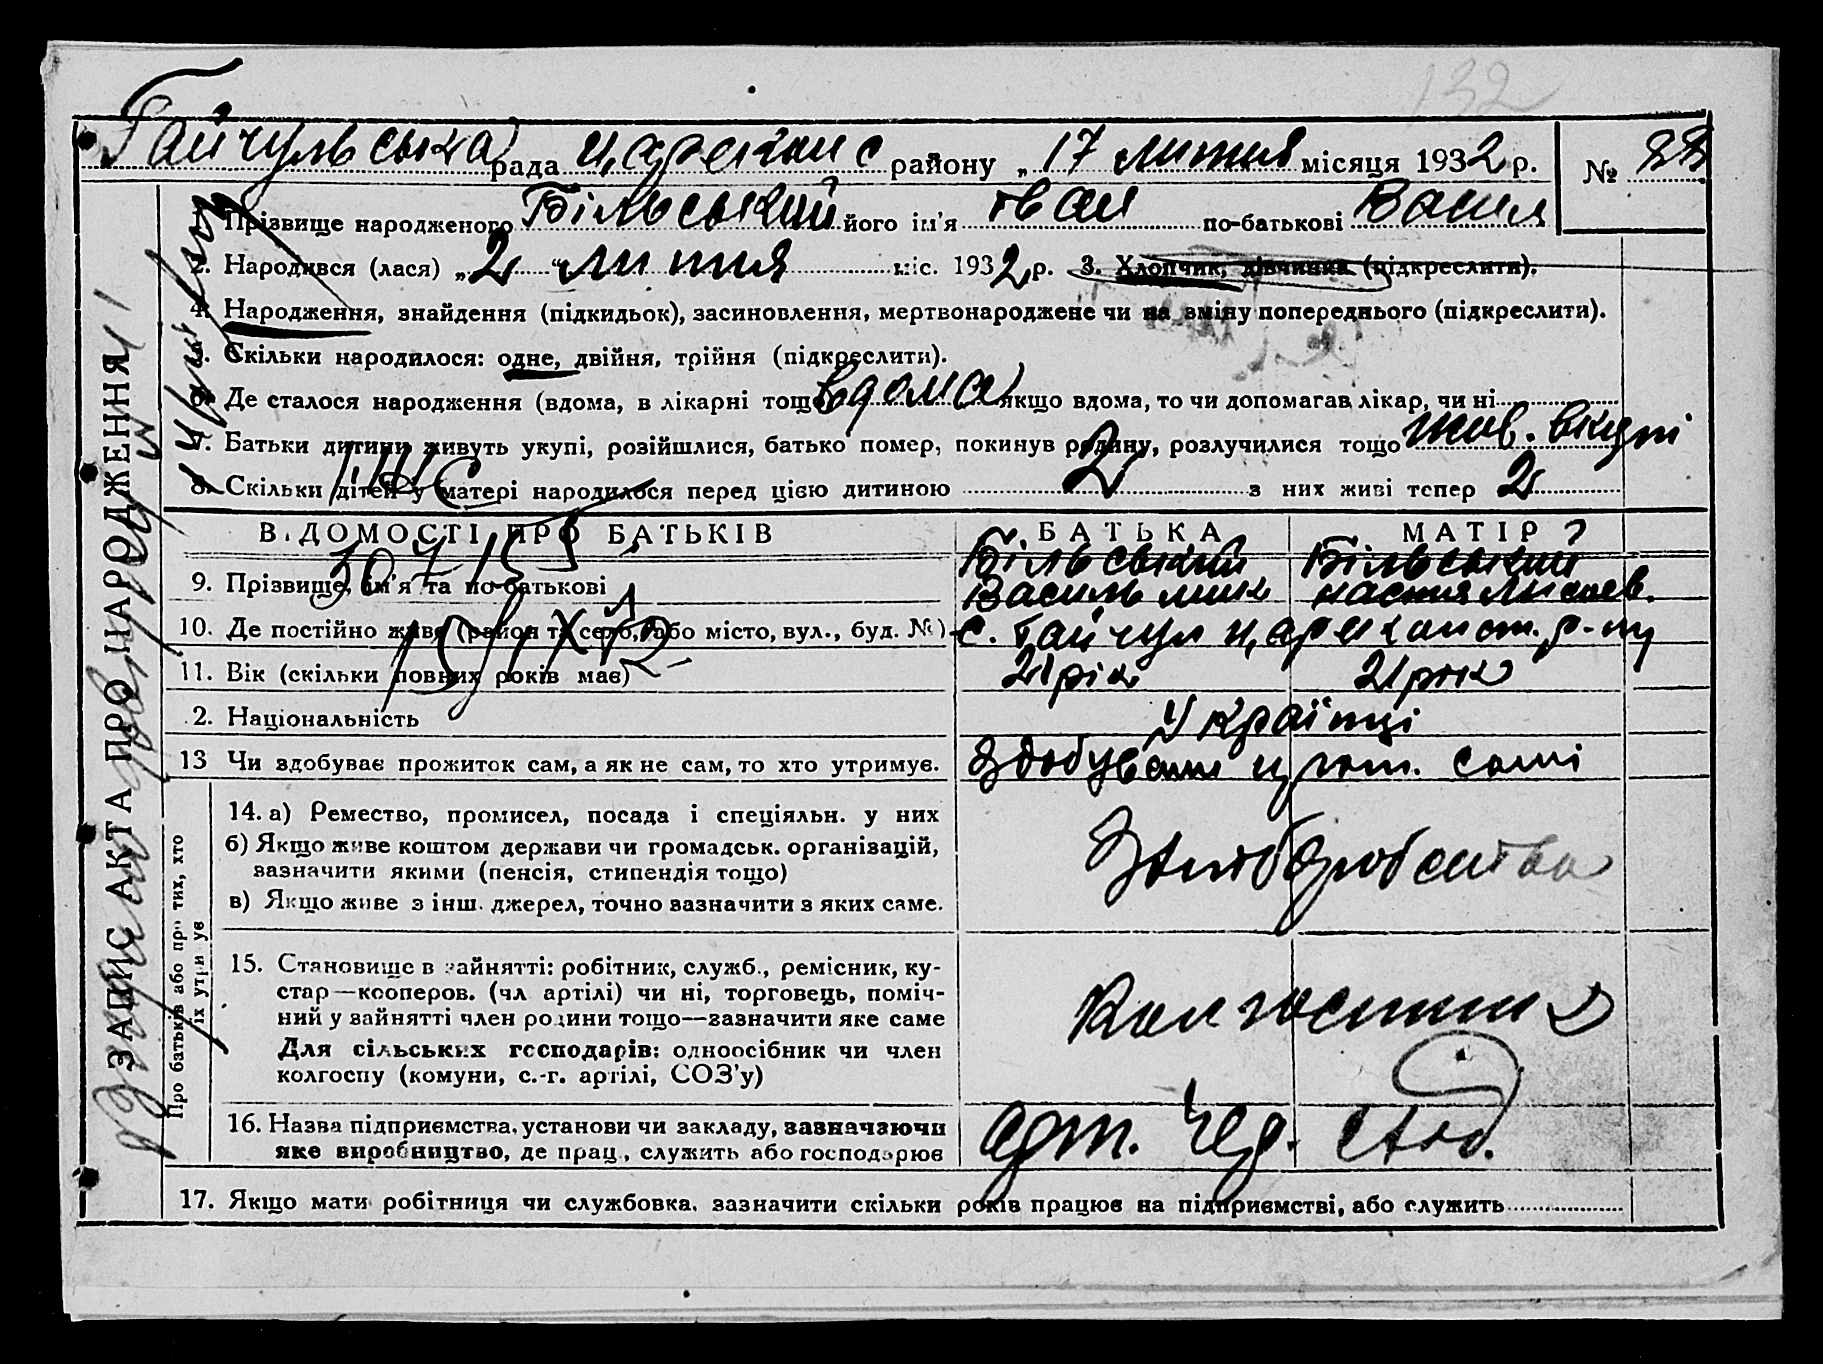 132
Гайчульська рада царекон с району „ 17 лютня місяця 1932 р. №
1. Прізвище народженого Більський його ім'я Іван по-батькові Васил
2. Народився (лася) „ 2 “ лютня міс. 1932 р. 3. Хлопчик, дівчинка (підкреслити).
4. Народження, знайдення (підкидьок), засиновлення, мертвонароджене чи на зміну попереднього (підкреслити).
5. Скільки народилося: одне, двійня, трійня (підкреслити).
6. Де сталося народження (вдома, в лікарні тощо) вдома якщо вдома, то чи допомагав лікар, чи ні
7. Батьки дитини живуть укупі, розійшлися, батько помер, покинув родину, розлучилися тощо жив. вкупі
8. Скільки дітей у матері народилося перед цією дитиною 2 з них живі тепер 2
ЗАПИС АКТА ПРО НАРОДЖЕННЯ
ВІДОМОСТІ ПРО БАТЬКІВ БАТЬКА МАТІР
9. Прізвище, ім'я та по-батькові Більський Більський
Василь настия
10. Де постійно живе (район та село, або місто, вул., буд. №) с. Гайчул царекон р-ну
11. Вік (скільки повних років має) 21 рік 21 рік
2. Національність Українці
13 Чи здобуває прожиток сам, а як не сам, то хто утримує. Здобувают сами
Про батьків або про тих, хто
їх утримує
14. а) Ремество, промисел, посада і спеціяльн. у них
б) Якщо живе коштом держави чи громадськ. організацій,
зазначити якими (пенсія, стипендія тощо)
в) Якщо живе з інш. джерел, точно зазначити з яких саме.
15. Становище в зайнятті: робітник, служб., ремісник, ку-
стар—кооперов. (чл артілі) чи ні, торговець, поміч-
ний у зайнятті член родини тощо—зазначити яке саме
Для сільських господарів: одноосібник чи член
колгоспу (комуни, с.-г. артілі, СОЗ'у)
16. Назва підприємства, установи чи закладу, зазначаючи
яке виробництво, де прац., служить або господарює
арт. Чер.
17. Якщо мати робітниця чи службовка, зазначити скільки років працює на підприємстві, або служить